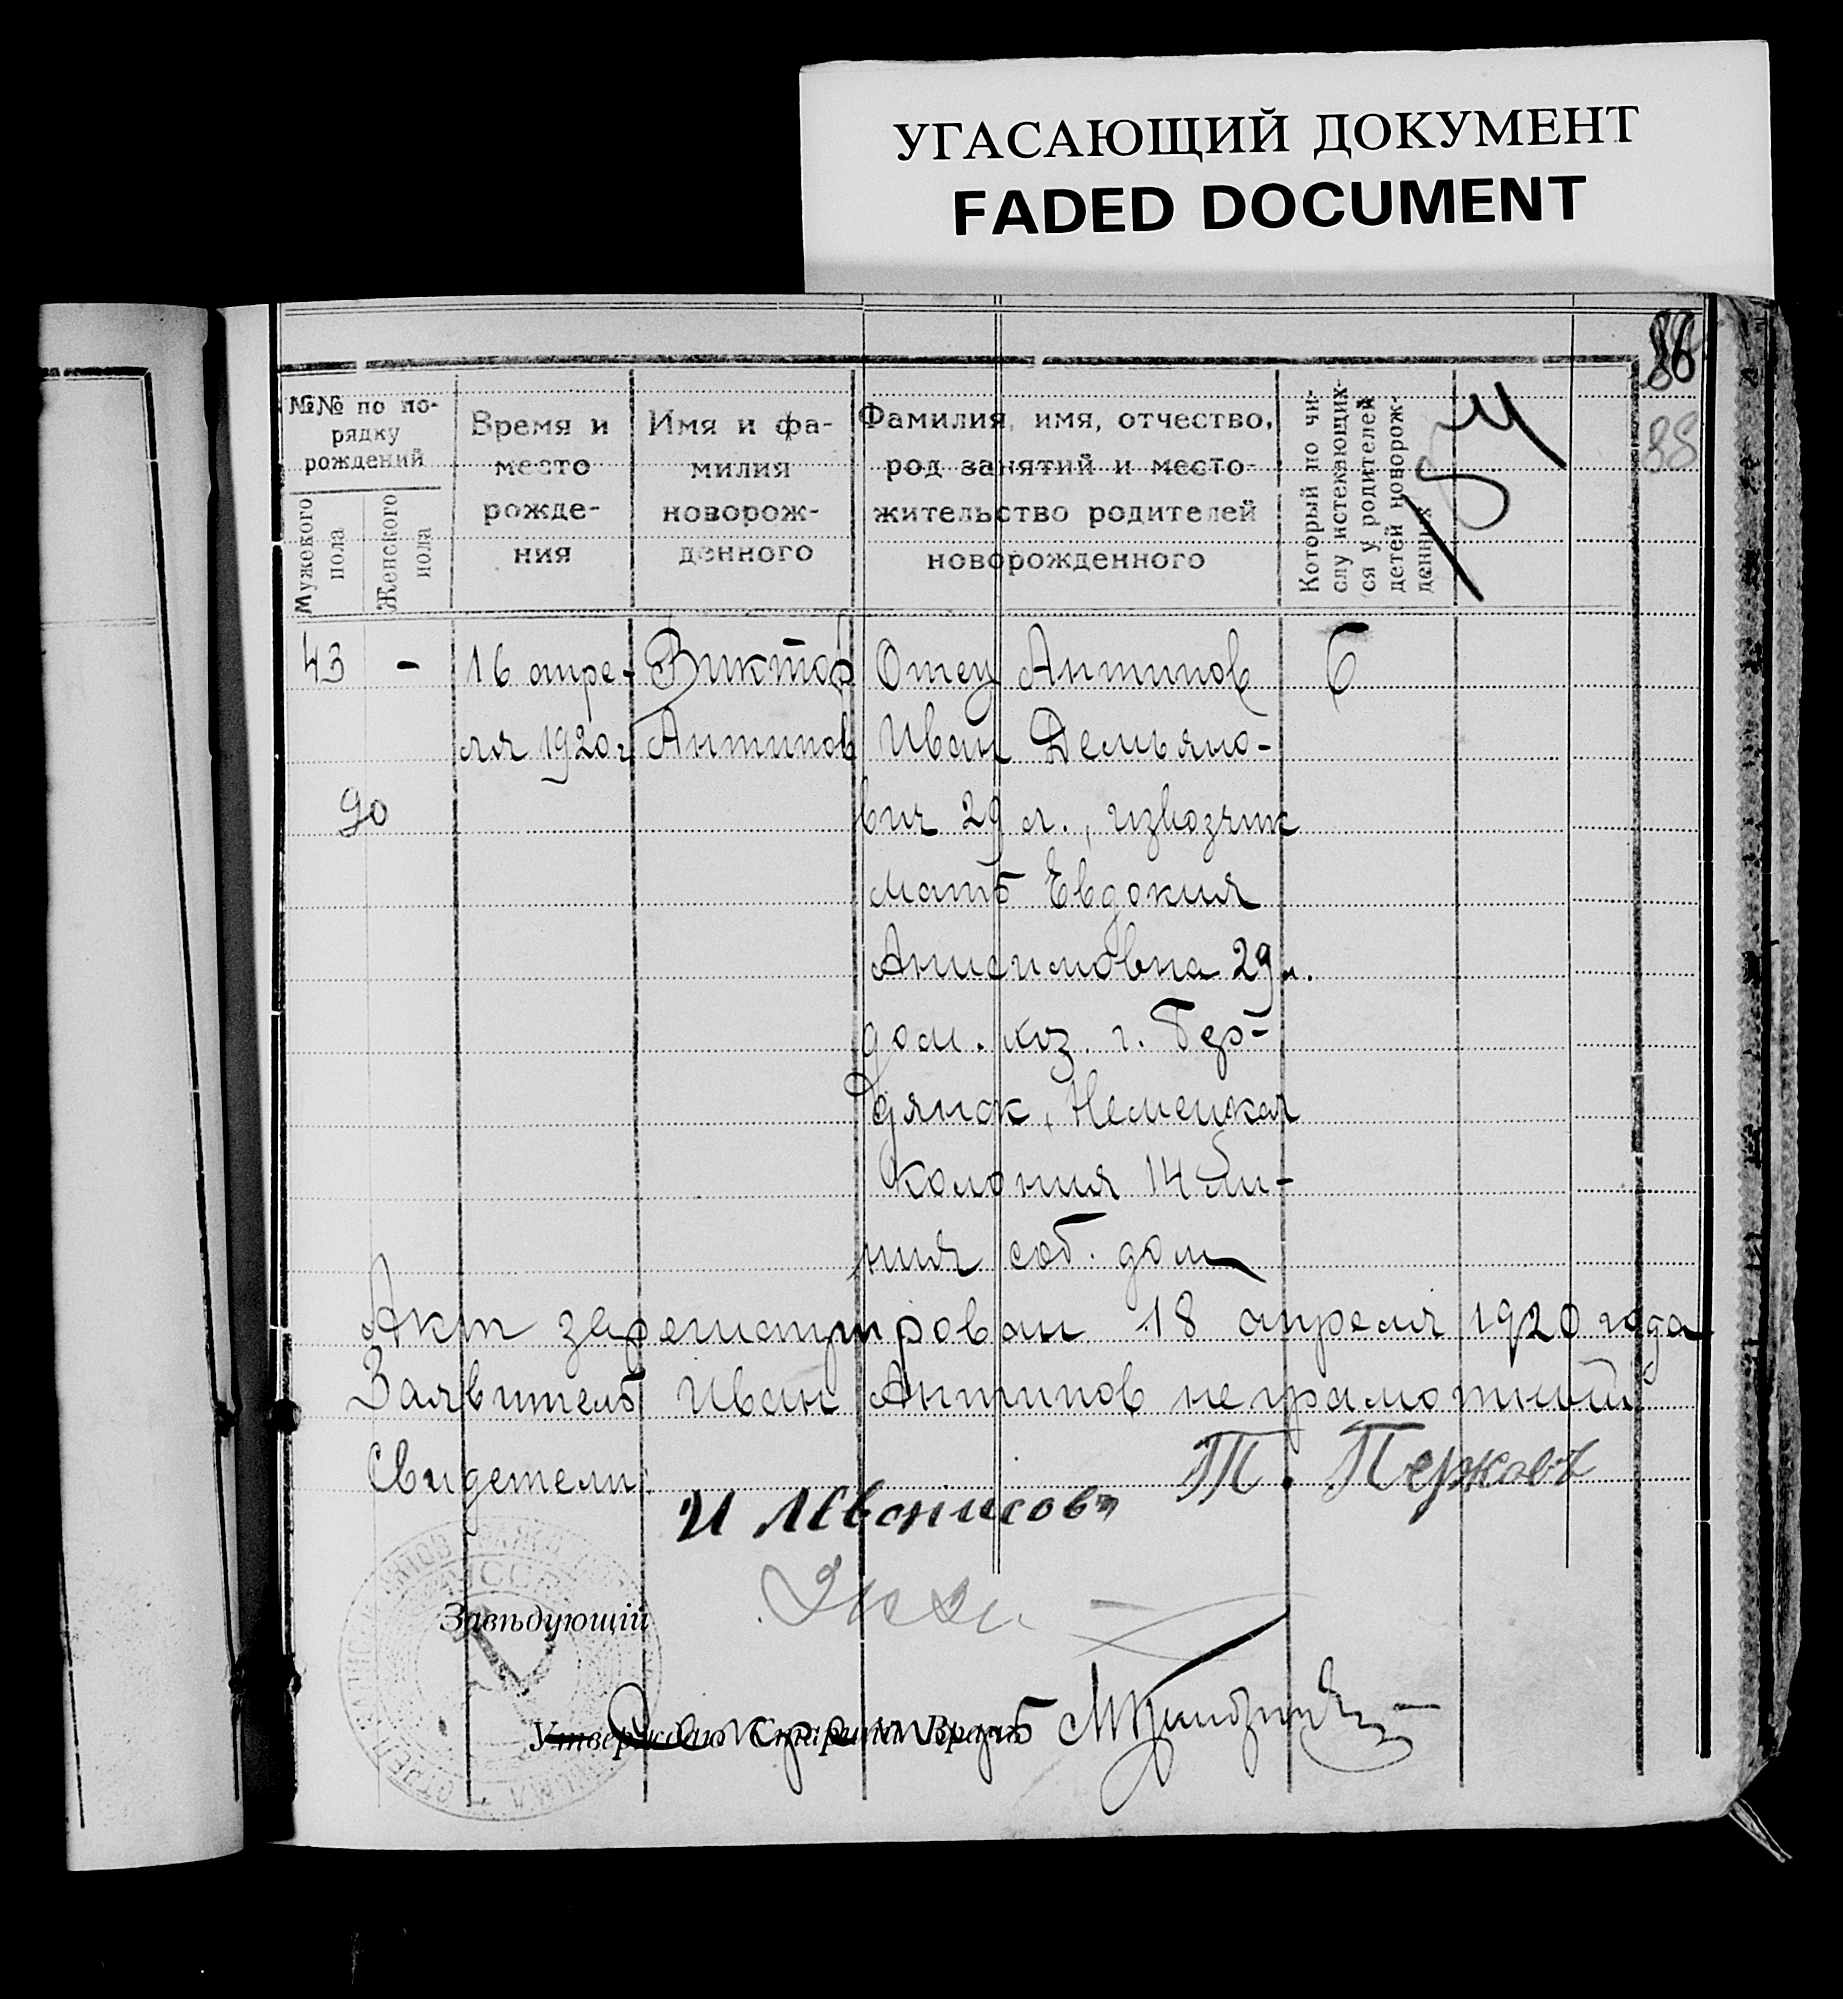 УГАСАЮЩИЙ ДОКУМЕНТ
FADED DOCUMENT
86
88
№№ по по-
рядку
рождений
Мужского
пола
Женского
пола
Время и
место
рожде-
ния
Имя и фа-
милия
новорож-
денного
Фамилия, имя, отчество,
род занятий и место-
жительство родителей
новорожденного
Который по чи-
слу истекающих-
ся у родителей
детей новорож-
денных
43 - 16 апре- Виктор Отец Антипов 6
ля 1920 г. Антипов Иван Демьяно-
90 вич 29 л., извозчик
мать Евдокия
Анисимовна 29 л.
дом. хоз. г. Бер-
дянск, Немецкая
колония 14 ли-
ния соб. дом
Акт зарегистрирован 18 апреля 1920 года
Заявитель Иван Антипов неграмотный
Свидетели:
Т. Перковъ
И
Завѣдующій
Утверждаю Старшій Врачъ
Секретарь